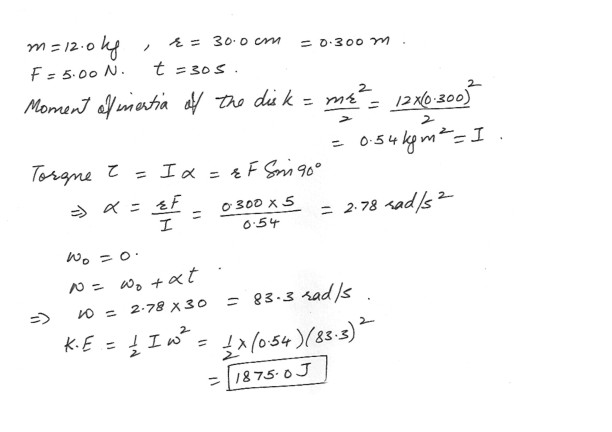 m = 12.0 kg , r = 30.0 cm = 0.300 m .
F = 5.00 N. t = 30 s .
Moment of inertia of the disk = mr²/2 = 12×(0.300)²/2
= 0.54 kg m² = I .
Torque τ = I α = r F Sin 90°
⇒ α = rF/I = 0.300 × 5/0.54 = 2.78 rad/s²
ω₀ = 0 .
ω = ω₀ + αt .
⇒ ω = 2.78 × 30 = 83.3 rad/s .
K.E = ½ I ω² = ½ × (0.54) (83.3)²
= 1875.0 J